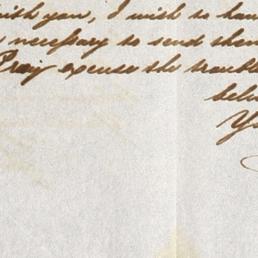 with you, I wish to
necessary to send them
Pray excuse the trouble